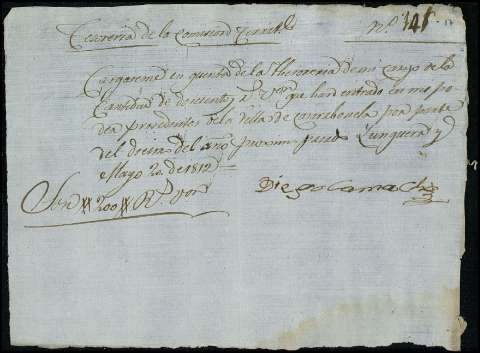 Tesoreria de la comision
Nº. 141
Cargareme en quenta de la thesoreria de mi cargo de la
Cantidad de doscientos rs von que han entrado en mi po
der prosedentes de la Villa de por parte
del del año proximo pasado Lunquera y
Mayo 20 de 1812
Son # 200 # Rs. von
Diego Camacho